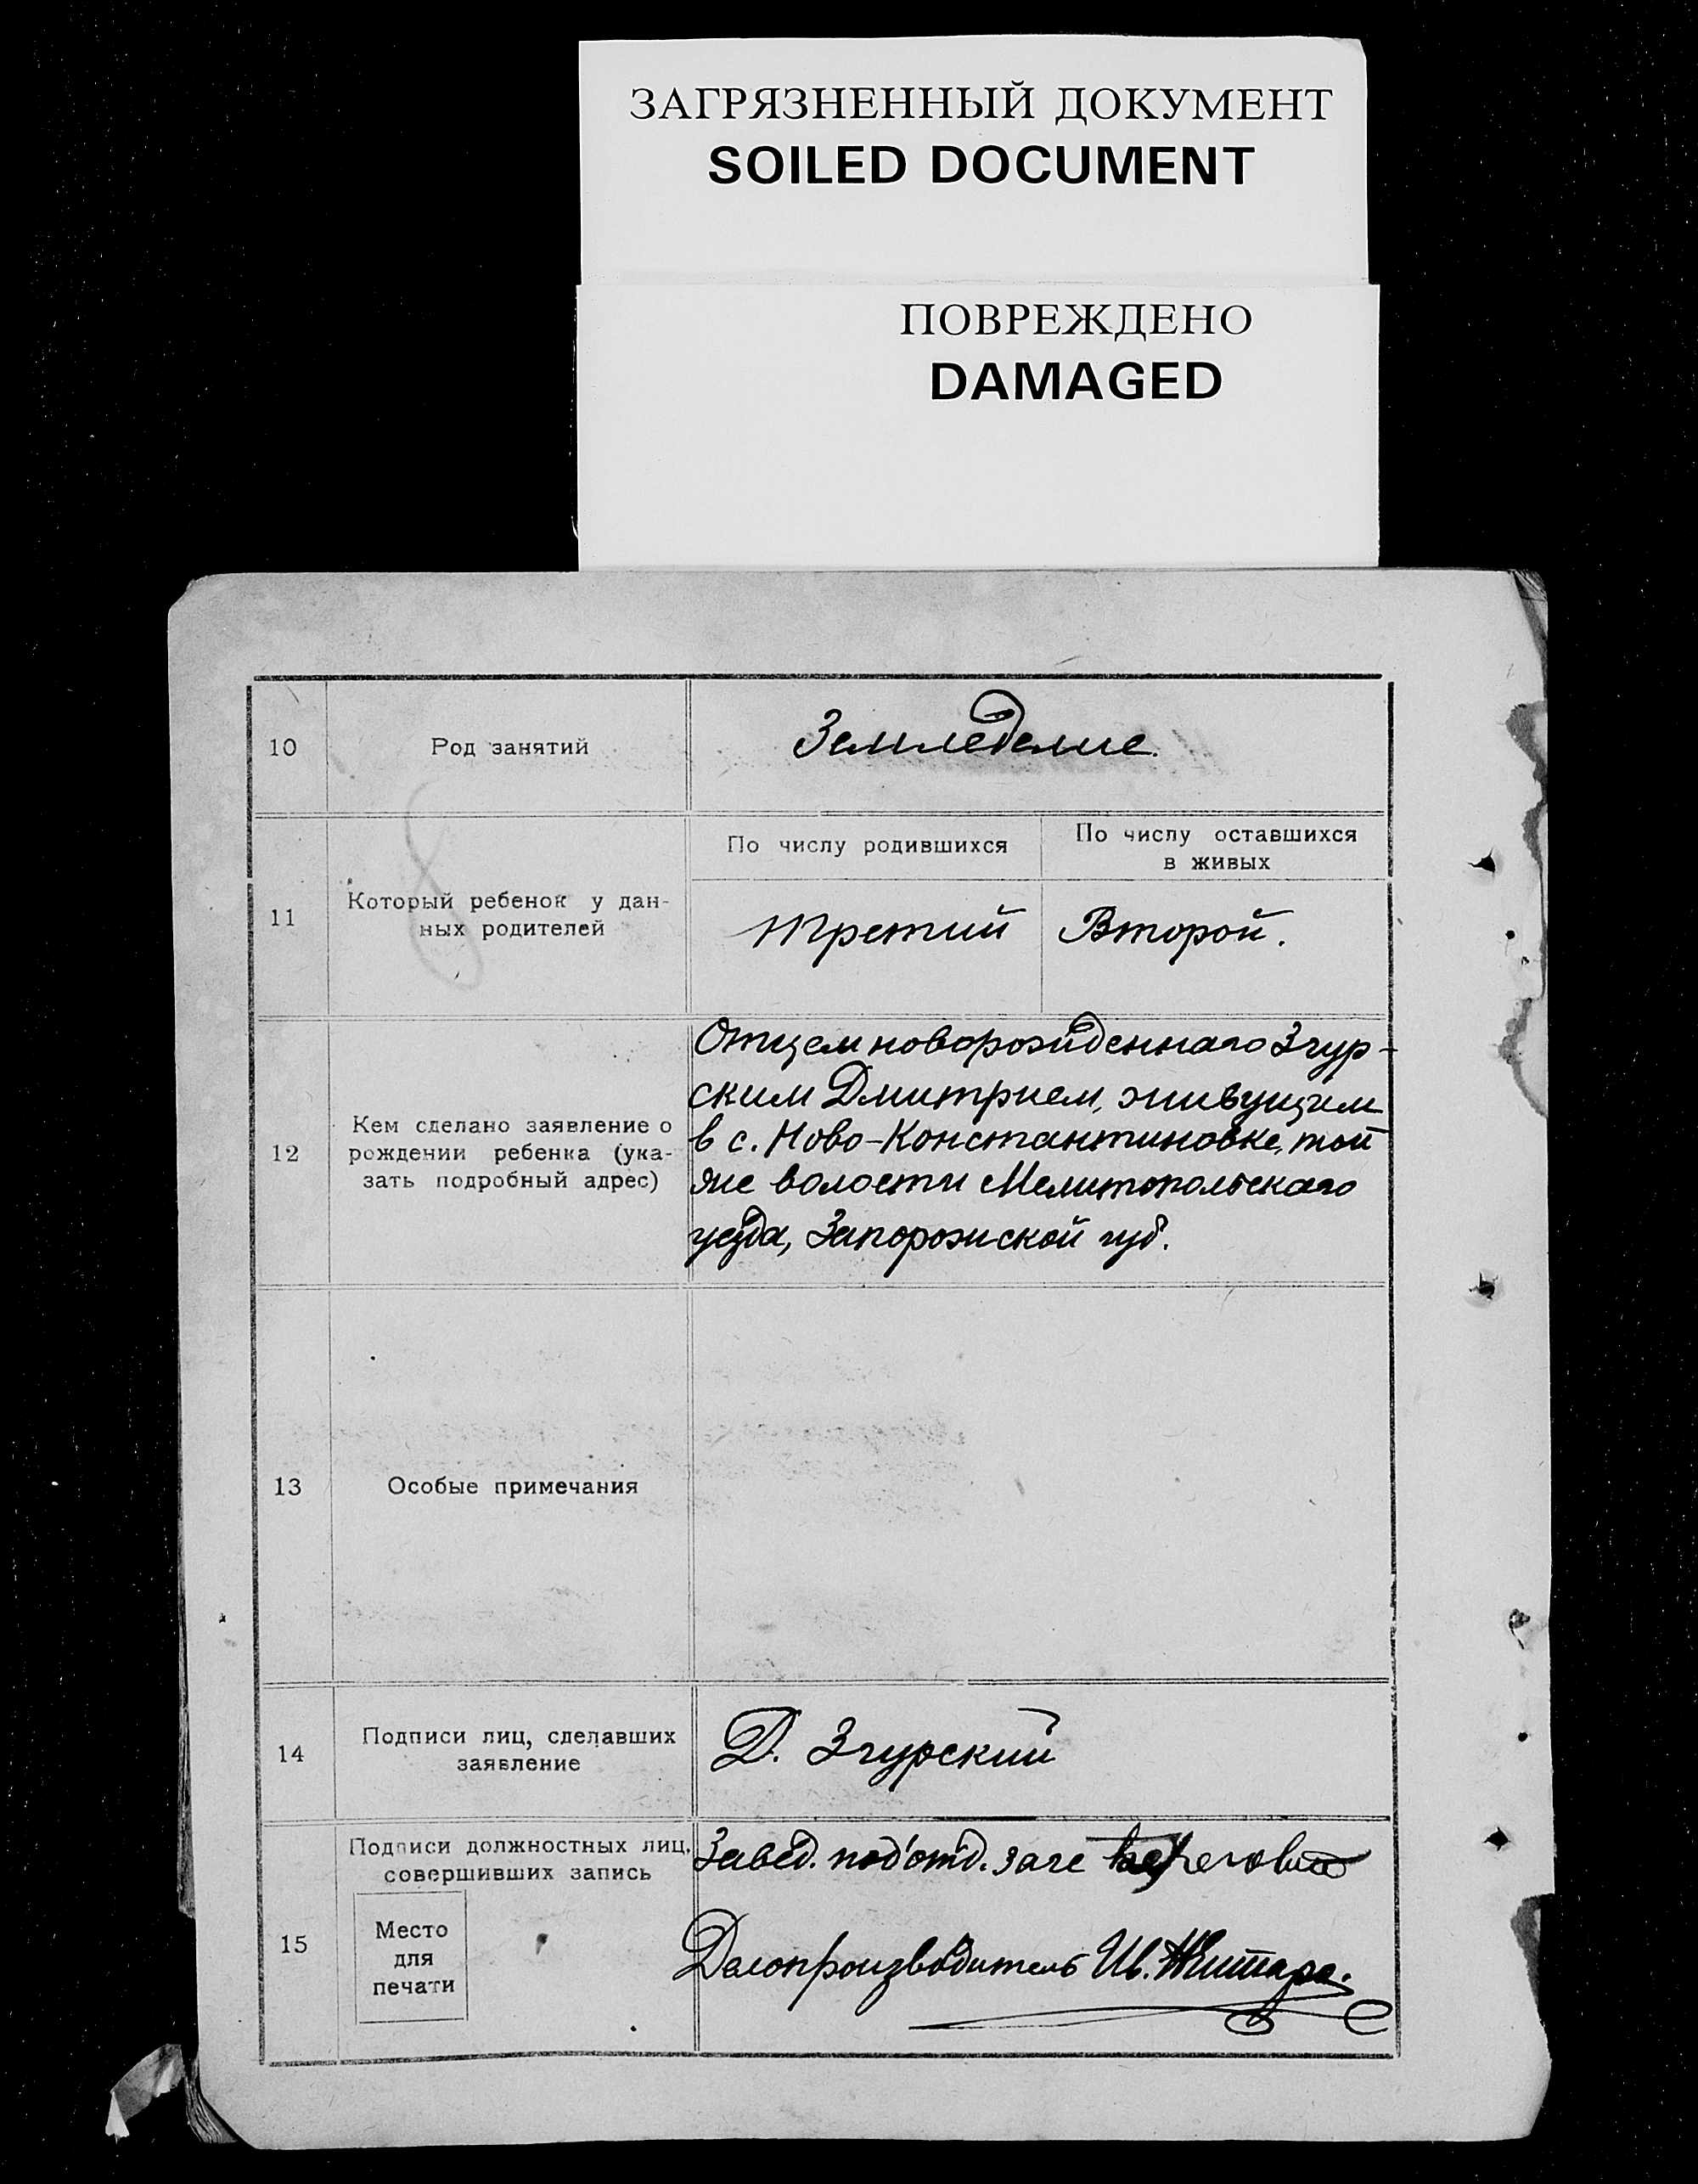 ЗАГРЯЗНЕННЫЙ ДОКУМЕНТ
SOILED DOCUMENT
ПОВРЕЖДЕНО
DAMAGED
10 Род занятий Земледелие.
По числу родившихся
По числу оставшихся
в живых
11 Который ребенок у дан-
ных родителей
третий Второй.
12 Кем сделано заявление о
рождении ребенка (ука-
зать подробный адрес)
Отцем новорожденнаго Згур-
ским Дмитрием, живущим
в с. Ново-Константиновке, той
же волости Мелитопольскаго
уезда, Запорожской губ.
13 Особые примечания
14 Подписи лиц, сделавших
заявление
Д. Згурский
15 Подписи должностных лиц,
совершивших запись
Место
для
печати
Завед. под'отд. загс
Делопроизводитель Ив.